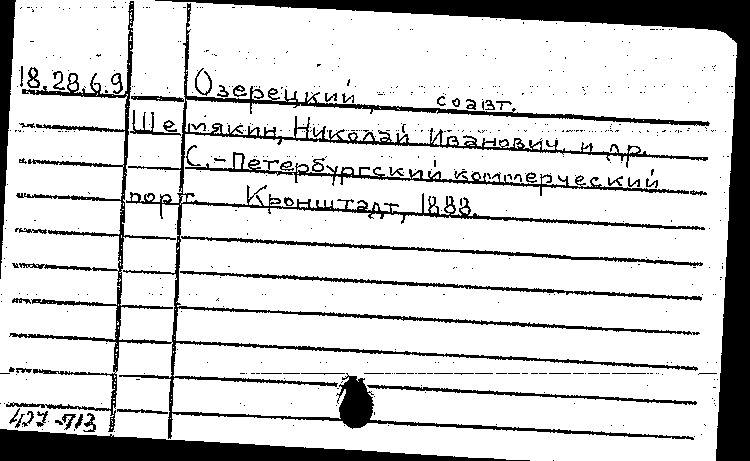 18.28.6.9 Озерецкий, соавт.
Шемякин, Николай Иванович и др.
С.-Петербургский коммерческий
порт. Кронштадт, 1888.
427-713